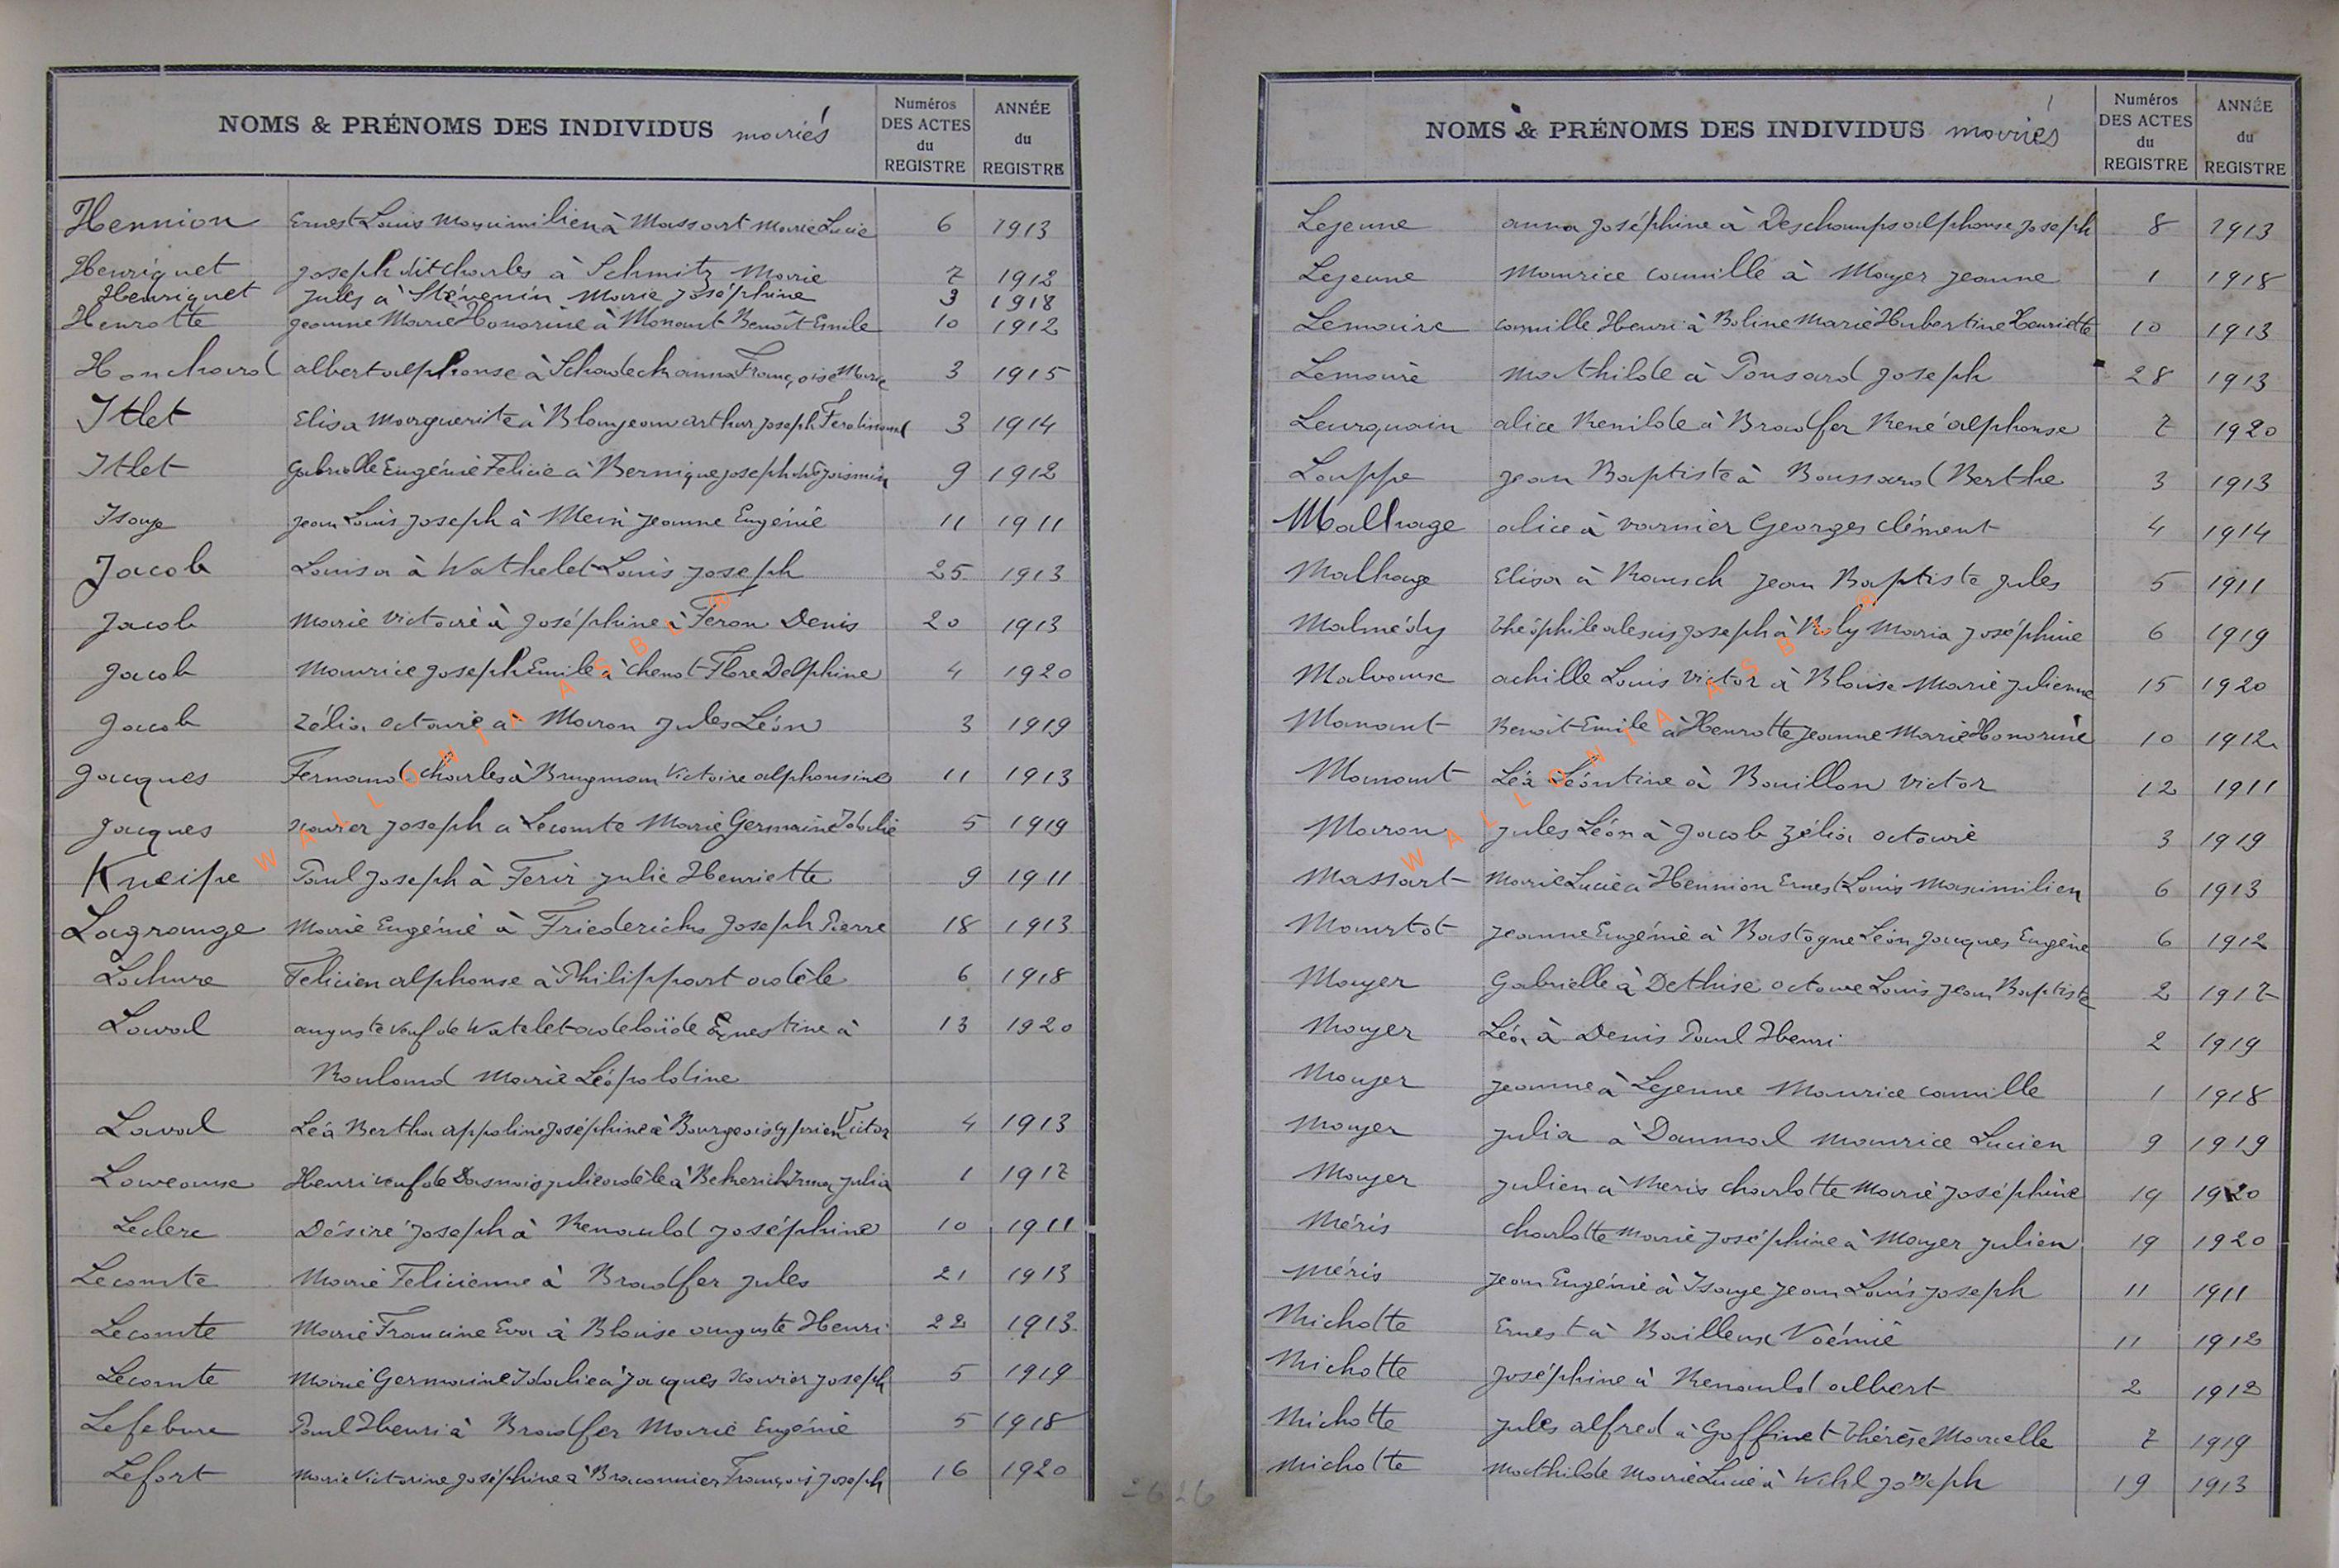 NOMS & PRÉNOMS DES INDIVIDUS mariés Numéros DES ACTES du REGISTRE ANNÉE du REGISTRE
Hennion Ernest Louis Maximilien à Massart Marie Lucie 6 1913
Henriquet Joseph dit Charles à Schmitz Marie 7 1912
Henriquet Jules à Stévenin Marie Joséphine 3 1918
Henrotte Jeanne Marie Honorine à Manant Benoît Emile 10 1912
Honchard albert alphonse à Schadeck anna Françoise Marie 3 1915
Itlet Elisa Marguerite à Blanjean arthur Joseph Ferdinand 3 1914
Itlet Gabrielle Eugénie Felicie à Bernique Joseph dit Jasmin 9 1912
Isaye Jean Louis Joseph à Meris Jeanne Eugénie 11 1911
Jacob Louisa à Wathelet Louis Joseph 25 1913
Jacob Marie Victoire à Joséphine à Feron Denis 20 1913
Jacob Maurice Joseph Emile à Chenot Flore Delphine 4 1920
Jacob Zélia octavie à Maron Jules Léon 3 1919
Jacques Fernand Charles à Brugman Victoire alphonsine 11 1913
Jacques Xavier Joseph à Lecomte Marie Germaine Idalie 5 1919
Kneipe Paul Joseph à Ferir Julie Henriette 9 1911
Lagrange Marie Eugénie à Friederichs Joseph Pierre 18 1913
Lahure Felicien alphonse à Philippart adèle 6 1918
Laval auguste veuf de Watelet adelaïde Ernestine à 13 1920
Rouland Marie Léopoldine
Laval Léa Bertha appoline Joséphine à Bourgeois Cyprien Victor 4 1913
Laveaux Henri veuf de Dasnois Julie adèle à Bekerich Irma Julia 1 1917
Leclerc Désiré Joseph à Renauld Joséphine 10 1911
Lecomte Marie Felicienne à Bradfer Jules 21 1913
Lecomte Marie Francine Eva à Blaise auguste Henri 22 1913
Lecomte Marie Germaine Idalie à Jacques Xavier Joseph 5 1919
Lefebure Paul Henri à Bradfer Marie Eugénie 5 1918
Lefort Marie Victorine Joséphine à Braconnier François Joseph 16 1920
26
NOMS & PRÉNOMS DES INDIVIDUS mariés Numéros DES ACTES du REGISTRE ANNÉE du REGISTRE
Lejeune anna Joséphine à Deschamps alphonse Joseph 8 1913
Lejeune Maurice camille à Mayer Jeanne 1 1918
Lemaire camille Henri à Boline Marie Hubertine Henriette 10 1913
Lemaire Mathilde à Ponsard Joseph 28 1913
Leurquin alice Renilde à Bradfer René alphonse 7 1920
Louppe Jean Baptiste à Boussard Berthe 3 1913
Malhage alice à Varnier Georges Clément 4 1914
Malhage Elisa à Rausch Jean Baptiste Jules 5 1911
Malmédy Théophile alexis Joseph à Roly Maria Joséphine 6 1919
Malvaux achille Louis Victor à Blaise Marie Julienne 15 1920
Manant Benoît Emile à Henrotte Jeanne Marie Honorine 10 1912
Manant Léa Léontine à Bouillon Victor 12 1911
Maron Jules Léon à Jacob Zélia octavie 3 1919
Massart Marie Lucie à Hennion Ernest Louis Maximilien 6 1913
Maurtot Jeanne Eugénie à Bastogne Léon Jacques Eugène 6 1912
Mayer Gabrielle à Dethise octave Louis Jean Baptiste 2 1917
Mayer Léa à Denis Paul Henri 2 1919
Mayer Jeanne à Lejeune Maurice camille 1 1918
Mayer Julia à Daunad Maurice Lucien 9 1919
Mayer Julien à Meris Charlotte Marie Joséphine 19 1920
Méris Charlotte Marie Joséphine à Mayer Julien 19 1920
Méris Jean Eugénie à Isaye Jean Louis Joseph 11 1911
Michotte Ernest à Bailleux Noémie 11 1912
Michotte Joséphine à Renauld albert 2 1912
Michotte Jules alfred à Goffinet Thérèse Marcelle 7 1919
Michotte Mathilde Marie Lucie à Wihl Joseph 19 1913
26
WALLONIA ASBL ®
WALLONIA ASBL ®